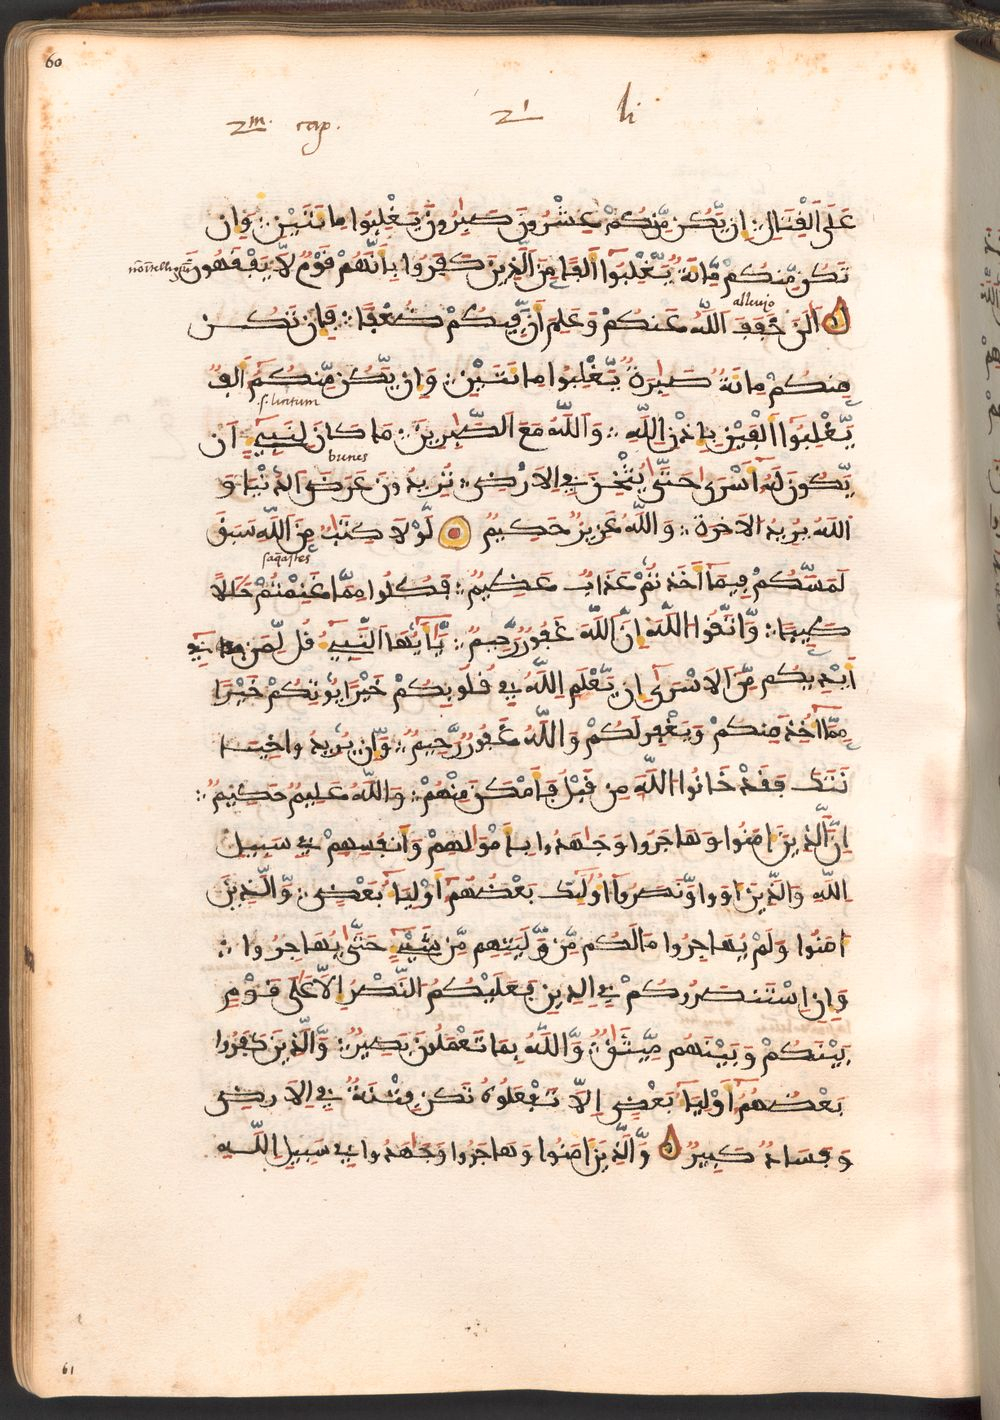 60
2m. cap. 2i li
عَلَى اَلْقِتَالِ ؞ اِن يَّكُن مِّنكُمْ عِشْرُونَ صَٰبِرُونَ يَغْلِبُوا مِاْئَتَيْنِ ؞ وَإِن
تَكُن مِّنكُم مِّاْئَةٌ يَّغْلِبُوٓا أَلْفًا مِّنَ اَلَّذِينَ كَفَرُوا بِأَنَّهُمْ قَوْمٌ لَّا يَفْقَهُونَ
allevjo
اَلَٰنَ خَفَّفَ اَللَّهُ عَنكُمْ وَعَلِمَ أَنَّ فِيكُمْ ضُعْفًا ؞ فَإِن تَكُن
مِنكُم مِاْئَةٌ صَابِرَةٌ يَّغْلِبُوا مِاْئَتَيْنِ ؞ وَإِن يَّكُن مِّنكُمْ أَلْفٌ
يَّغْلِبُوٓا أَلْفَيْنِ بِإِذْنِ اِللَّهِ ؞ وَاَللَّهُ مَعَ اَلصَّٰبِرِينَ ؞ مَا كَانَ لِنَبِيٓءٍ اَن
bunes
يَّكُونَ لَهُ أَسْرَىٰ حَتَّىٰ يُثْخِنَ فِي اِلَارْضِ ؞ تُرِيدُونَ عَرَضَ اَلدُّنْيَا وَ
اَللَّهُ يُرِيدُ الَاخِرَةَ ؞ وَاَللَّهُ عَزِيزٌ حَكِيمٌ لَّوْلَا كِتَٰبٌ مِّنَ اَللَّهِ سَبَقَ
لَمَسَّكُمْ فِيمَآ أَخَذتُّمْ عَذَابٌ عَظِيمٌ ؞ فَكُلُوا مِمَّا غَنِمْتُمْ حَلَٰلًا
طَيِّبًا ؞ وَّاتَّقُوا اللَّهَ إِنَّ اَللَّهَ غَفُورٌ رَّحِيمٌ ؞ يَٰٓأَيُّهَا اَلنَّبِيٓءُ قُل لِّمَن فِي
أَيْدِيكُم مِّنَ اَلَاسْرَىٰ إِن يَّعْلَمِ اِللَّهُ فِي قُلُوبِكُمْ خَيْرًا يُوتِكُمْ خَيْرًا
مِمَّآ أُخِذَ مِنكُمْ وَيَغْفِرْ لَكُمْ وَاَللَّهُ غَفُورٌ رَّحِيمٌ ؞ وَّإِن يُّرِيدُوا خِيَا
نَتَكَ فَقَدْ خَانُوا اللَّهَ مِن قَبْلُ فَأَمْكَنَ مِنْهُمْ ؞ وَاللَّهُ عَلِيمٌ حَكِيمٌ ؞
اِنَّ اَلَّذِينَ ءَامَنُوا وَهَاجَرُوا وَجَٰهَدُوا بِأَمْوَٰلِهِمْ وَأَنفُسِهِمْ فِي سَبِيلِ
اِللَّهِ وَالَّذِينَ ءَاوَوا وَّنَصَرُوٓا أُوْلَٰٓئِكَ بَعْضُهُمْ أَوْلِيَآءُ بَعْضٍ ؞ وَّالَّذِينَ
ءَامَنُوا وَلَمْ يُهَاجِرُوا مَا لَكُم مِّن وَّلَٰيَتِهِم مِّن شَيْءٍ حَتَّىٰ يُهَاجِرُوا ؞
وَإِنِ اِسْتَنصَرُوكُمْ فِي اِلدِّينِ فَعَلَيْكُمُ اَلنَّصْرُ إِلَّا عَلَىٰ قَوْمِۢ
بَيْنَكُمْ وَبَيْنَهُم مِّيثَٰقٌ ؞ وَّاللَّهُ بِمَا تَعْمَلُونَ بَصِيرٌ ؞ وَّالَّذِينَ كَفَرُوا
بَعْضُهُمْ أَوْلِيَآءُ بَعْضٍ اِلَّا تَفْعَلُوهُ تَكُن فِتْنَةٌ فِي اِلَارْضِ
وَفَسَادٌ كَبِيرٌ وَّالَّذِينَ ءَامَنُوا وَهَاجَرُوا وَجَٰهَدُوا فِي سَبِيلِ اِللَّهِ
61